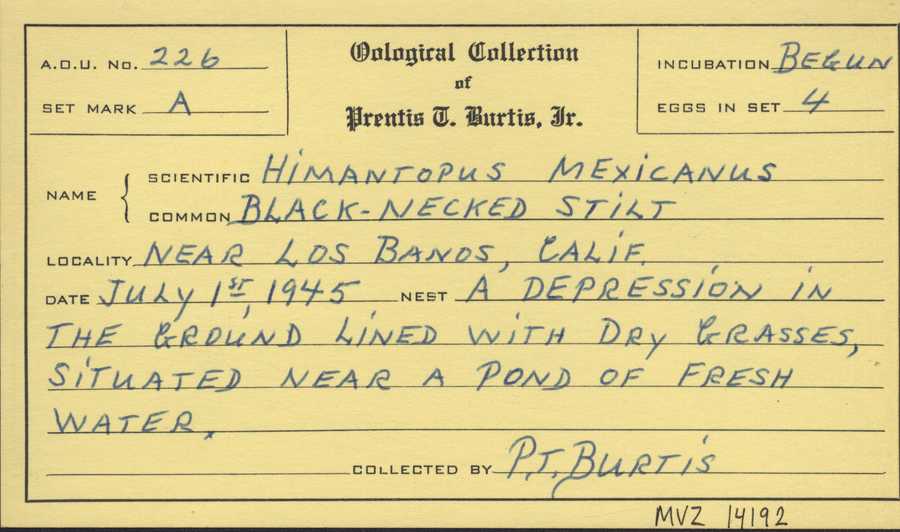 A.O.U. No. 226
SET MARK A
Oological Collection
of
Prentis T. Burtis, Jr.
INCUBATION BEGUN
EGGS IN SET 4
NAME
SCIENTIFIC HIMANTOPUS MEXICANUS
COMMON BLACK-NECKED STILT
LOCALITY NEAR LOS BANOS, CALIF.
DATE JULY 1ST, 1945 NEST A DEPRESSION IN
THE GROUND LINED WITH DRY GRASSES,
SITUATED NEAR A POND OF FRESH
WATER.
COLLECTED BY P.T. BURTIS
MVZ 14192